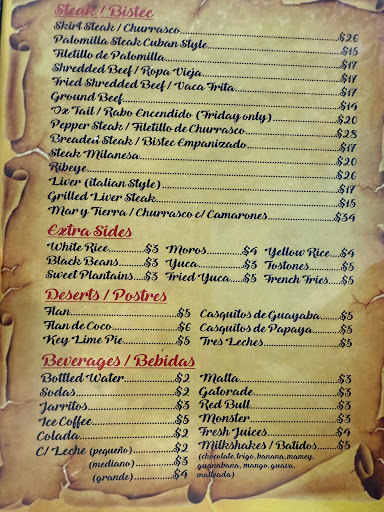 Steak / Bistec
Skirt Steak / Churrasco $26
Palomilla Steak Cuban Style $15
Filetillo de Palomilla $17
Shredded Beef / Ropa Vieja $17
Fried Shredded Beef / Vaca Frita $17
Ground Beef $14
Ox Tail / Rabo Encendido (Friday only) $20
Pepper Steak / Filetillo de Churrasco $28
Breaded Steak / Bistec Empanizado $17
Steak Milanesa $20
Ribeye $26
Liver (italian Style) $17
Grilled Liver Steak $15
Mar y Tierra / Churrasco c/ Camarones $34
Extra Sides
White Rice $3 Moros $4 Yellow Rice $4
Black Beans $3 Yuca $3 Tostones $5
Sweet Plantains $3 Fried Yuca $5 French Fries $5
Deserts / Postres
Flan $5 Casquitos de Guayaba $5
Flan de Coco $6 Casquitos de Papaya $5
Key Lime Pie $5 Tres Leches $5
Beverages / Bebidas
Bottled Water $2 Malta $3
Sodas $2 Gatorade $3
Jarritos $3 Red Bull $3
Ice Coffee $5 Monster $3
Colada $2 Fresh Juices $4
C/ Leche (pequeño) $2 Milkshakes / Batidos $5
(mediano) $3 (chocolate, trigo, banana, mamey,
guanabana, mango, guava,
(grande) $4 malteada)